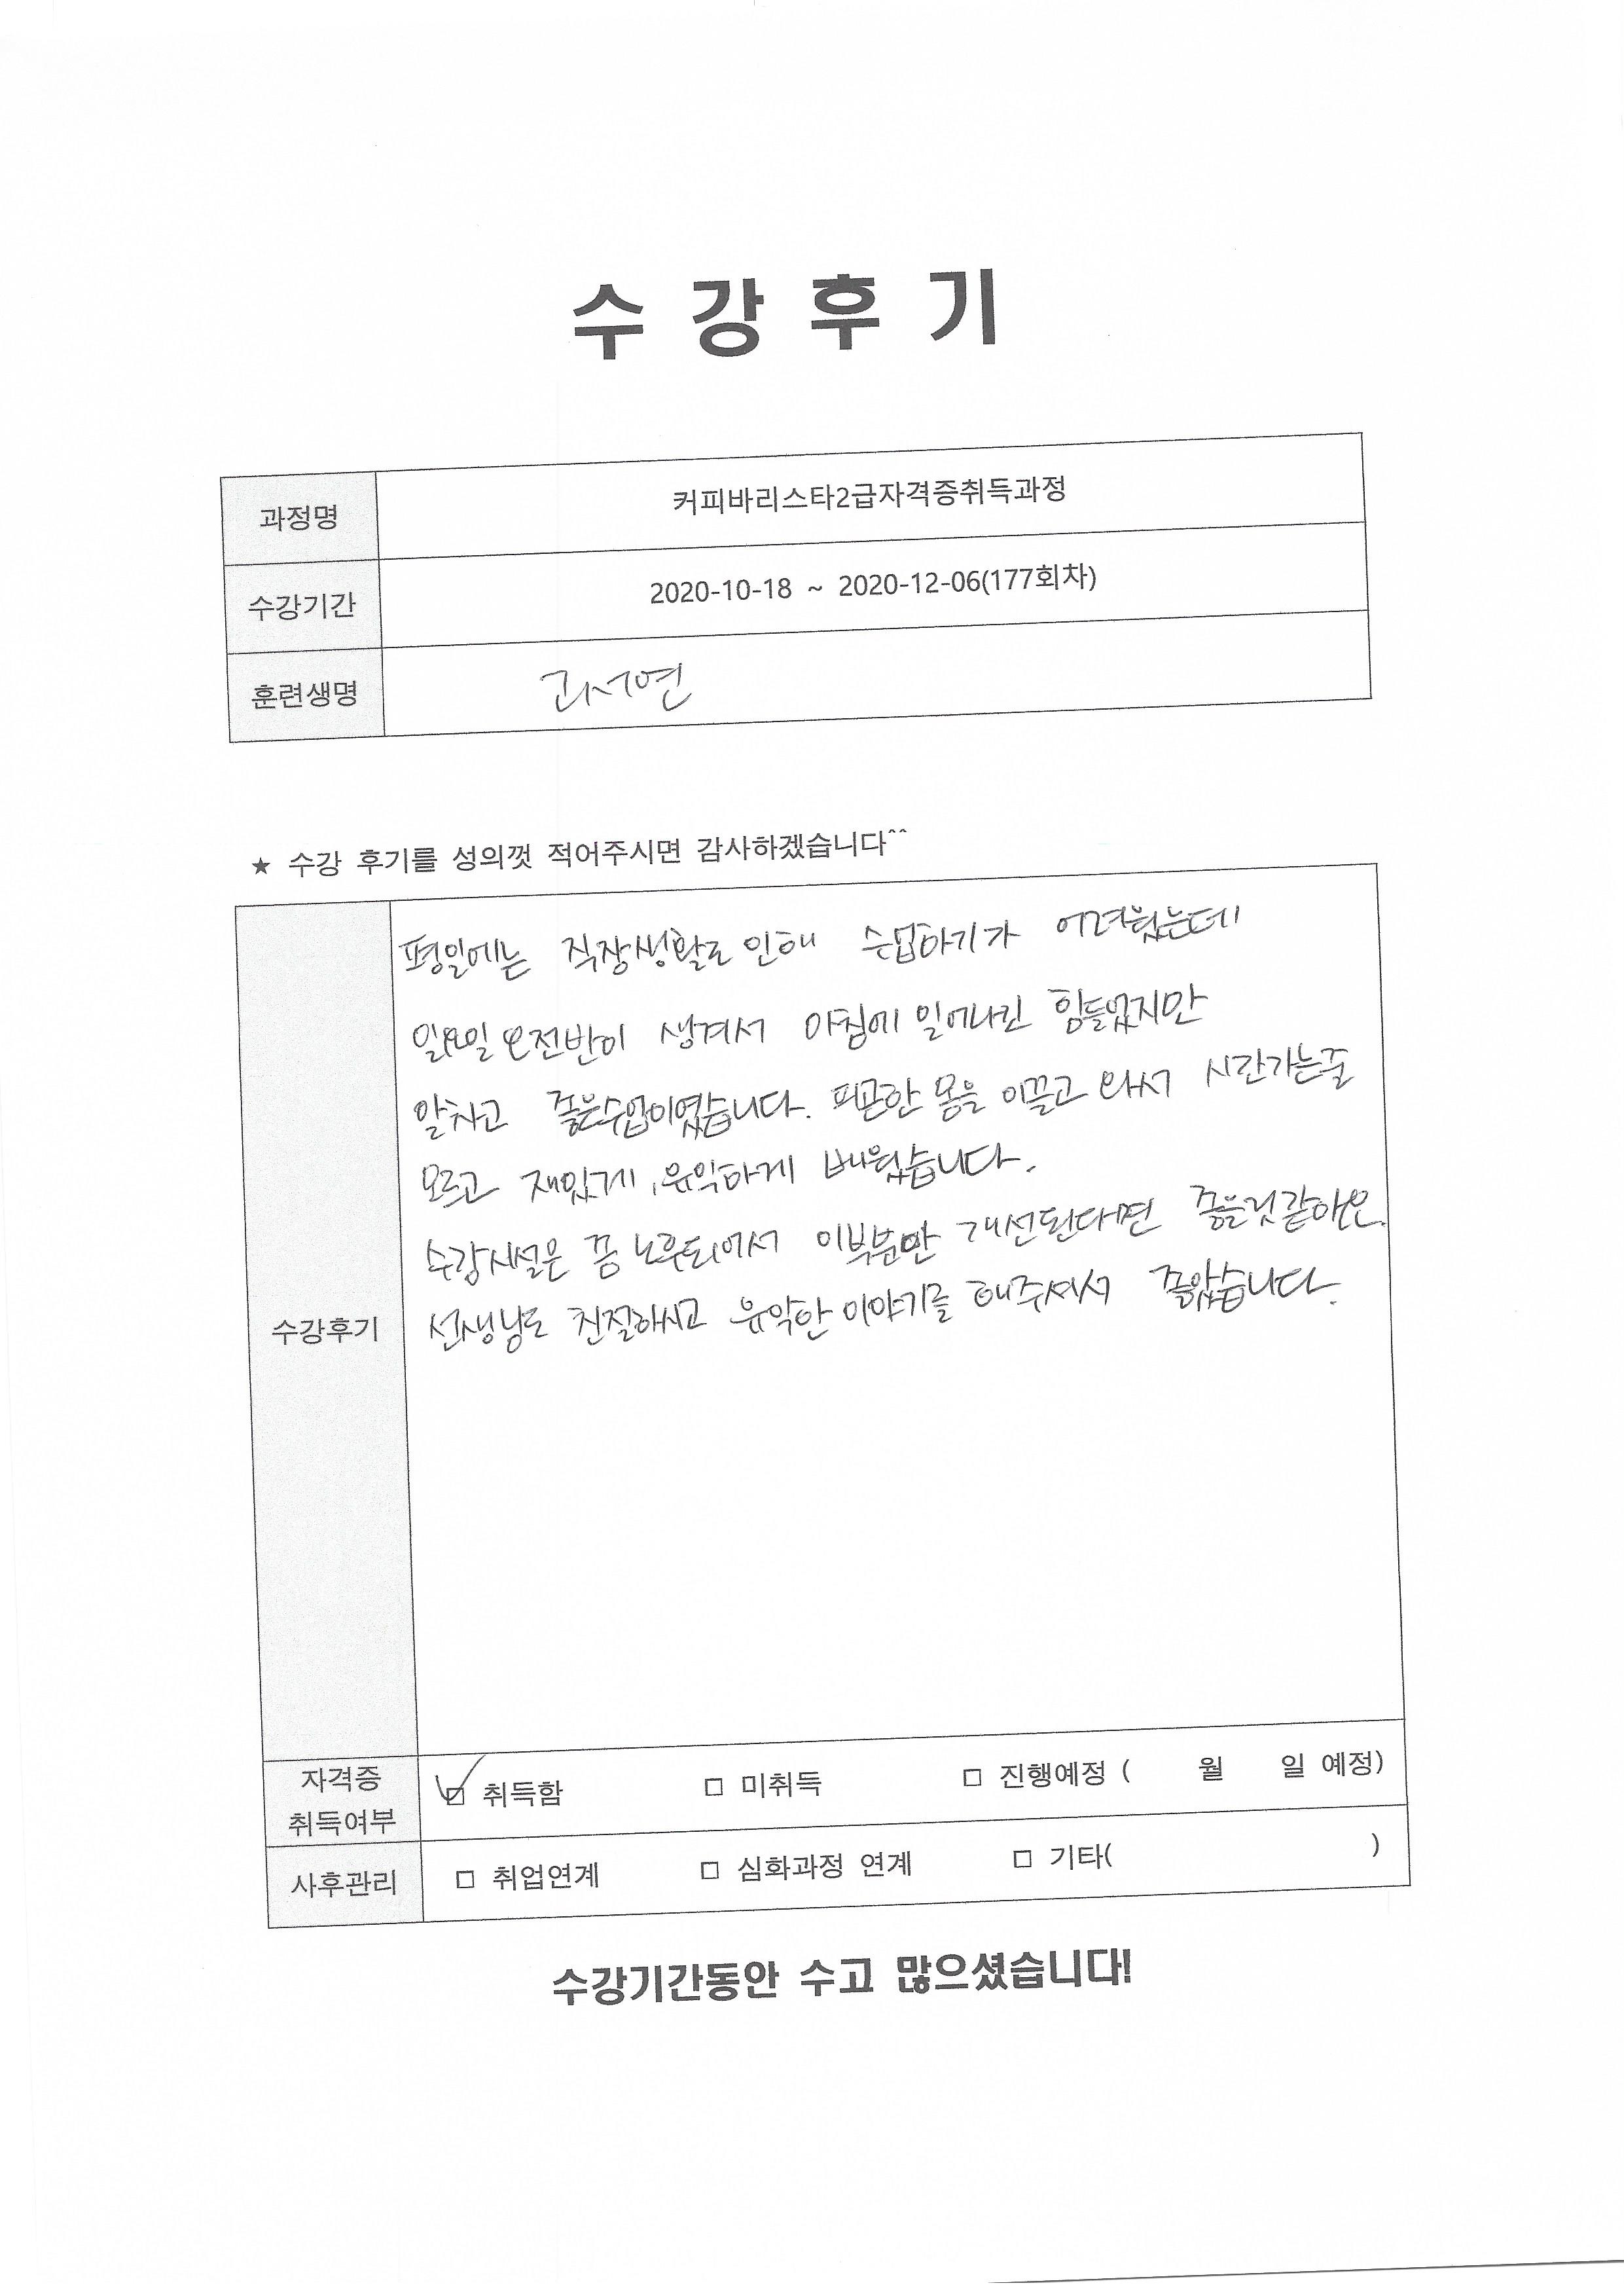 수 강 후 기
과정명 커피바리스타2급자격증취득과정
수강기간 2020-10-18 ~ 2020-12-06(177회차)
훈련생명 고서연
★ 수강 후기를 성의껏 적어주시면 감사하겠습니다^^
평일에는 직장생활로 인해 수업하기가 어려웠는데
일요일 오전반이 생겨서 아침에 일어나긴 힘들었지만
알차고 좋은수업이였습니다. 피곤한 몸을 이끌고 와서 시간가는줄
모르고 재밌게, 유익하게 배웠습니다.
수강시설은 쫌 노후되어서 이부분만 개선된다면 좋을것같아요.
수강후기
선생님도 친절하시고 유익한 이야기를 해주셔서 좋았습니다.
자격증
취득여부
□ 취득함 □ 미취득 □ 진행예정 ( 월 일 예정)
사후관리 □ 취업연계 □ 심화과정 연계 □ 기타( )
수강기간동안 수고 많으셨습니다!